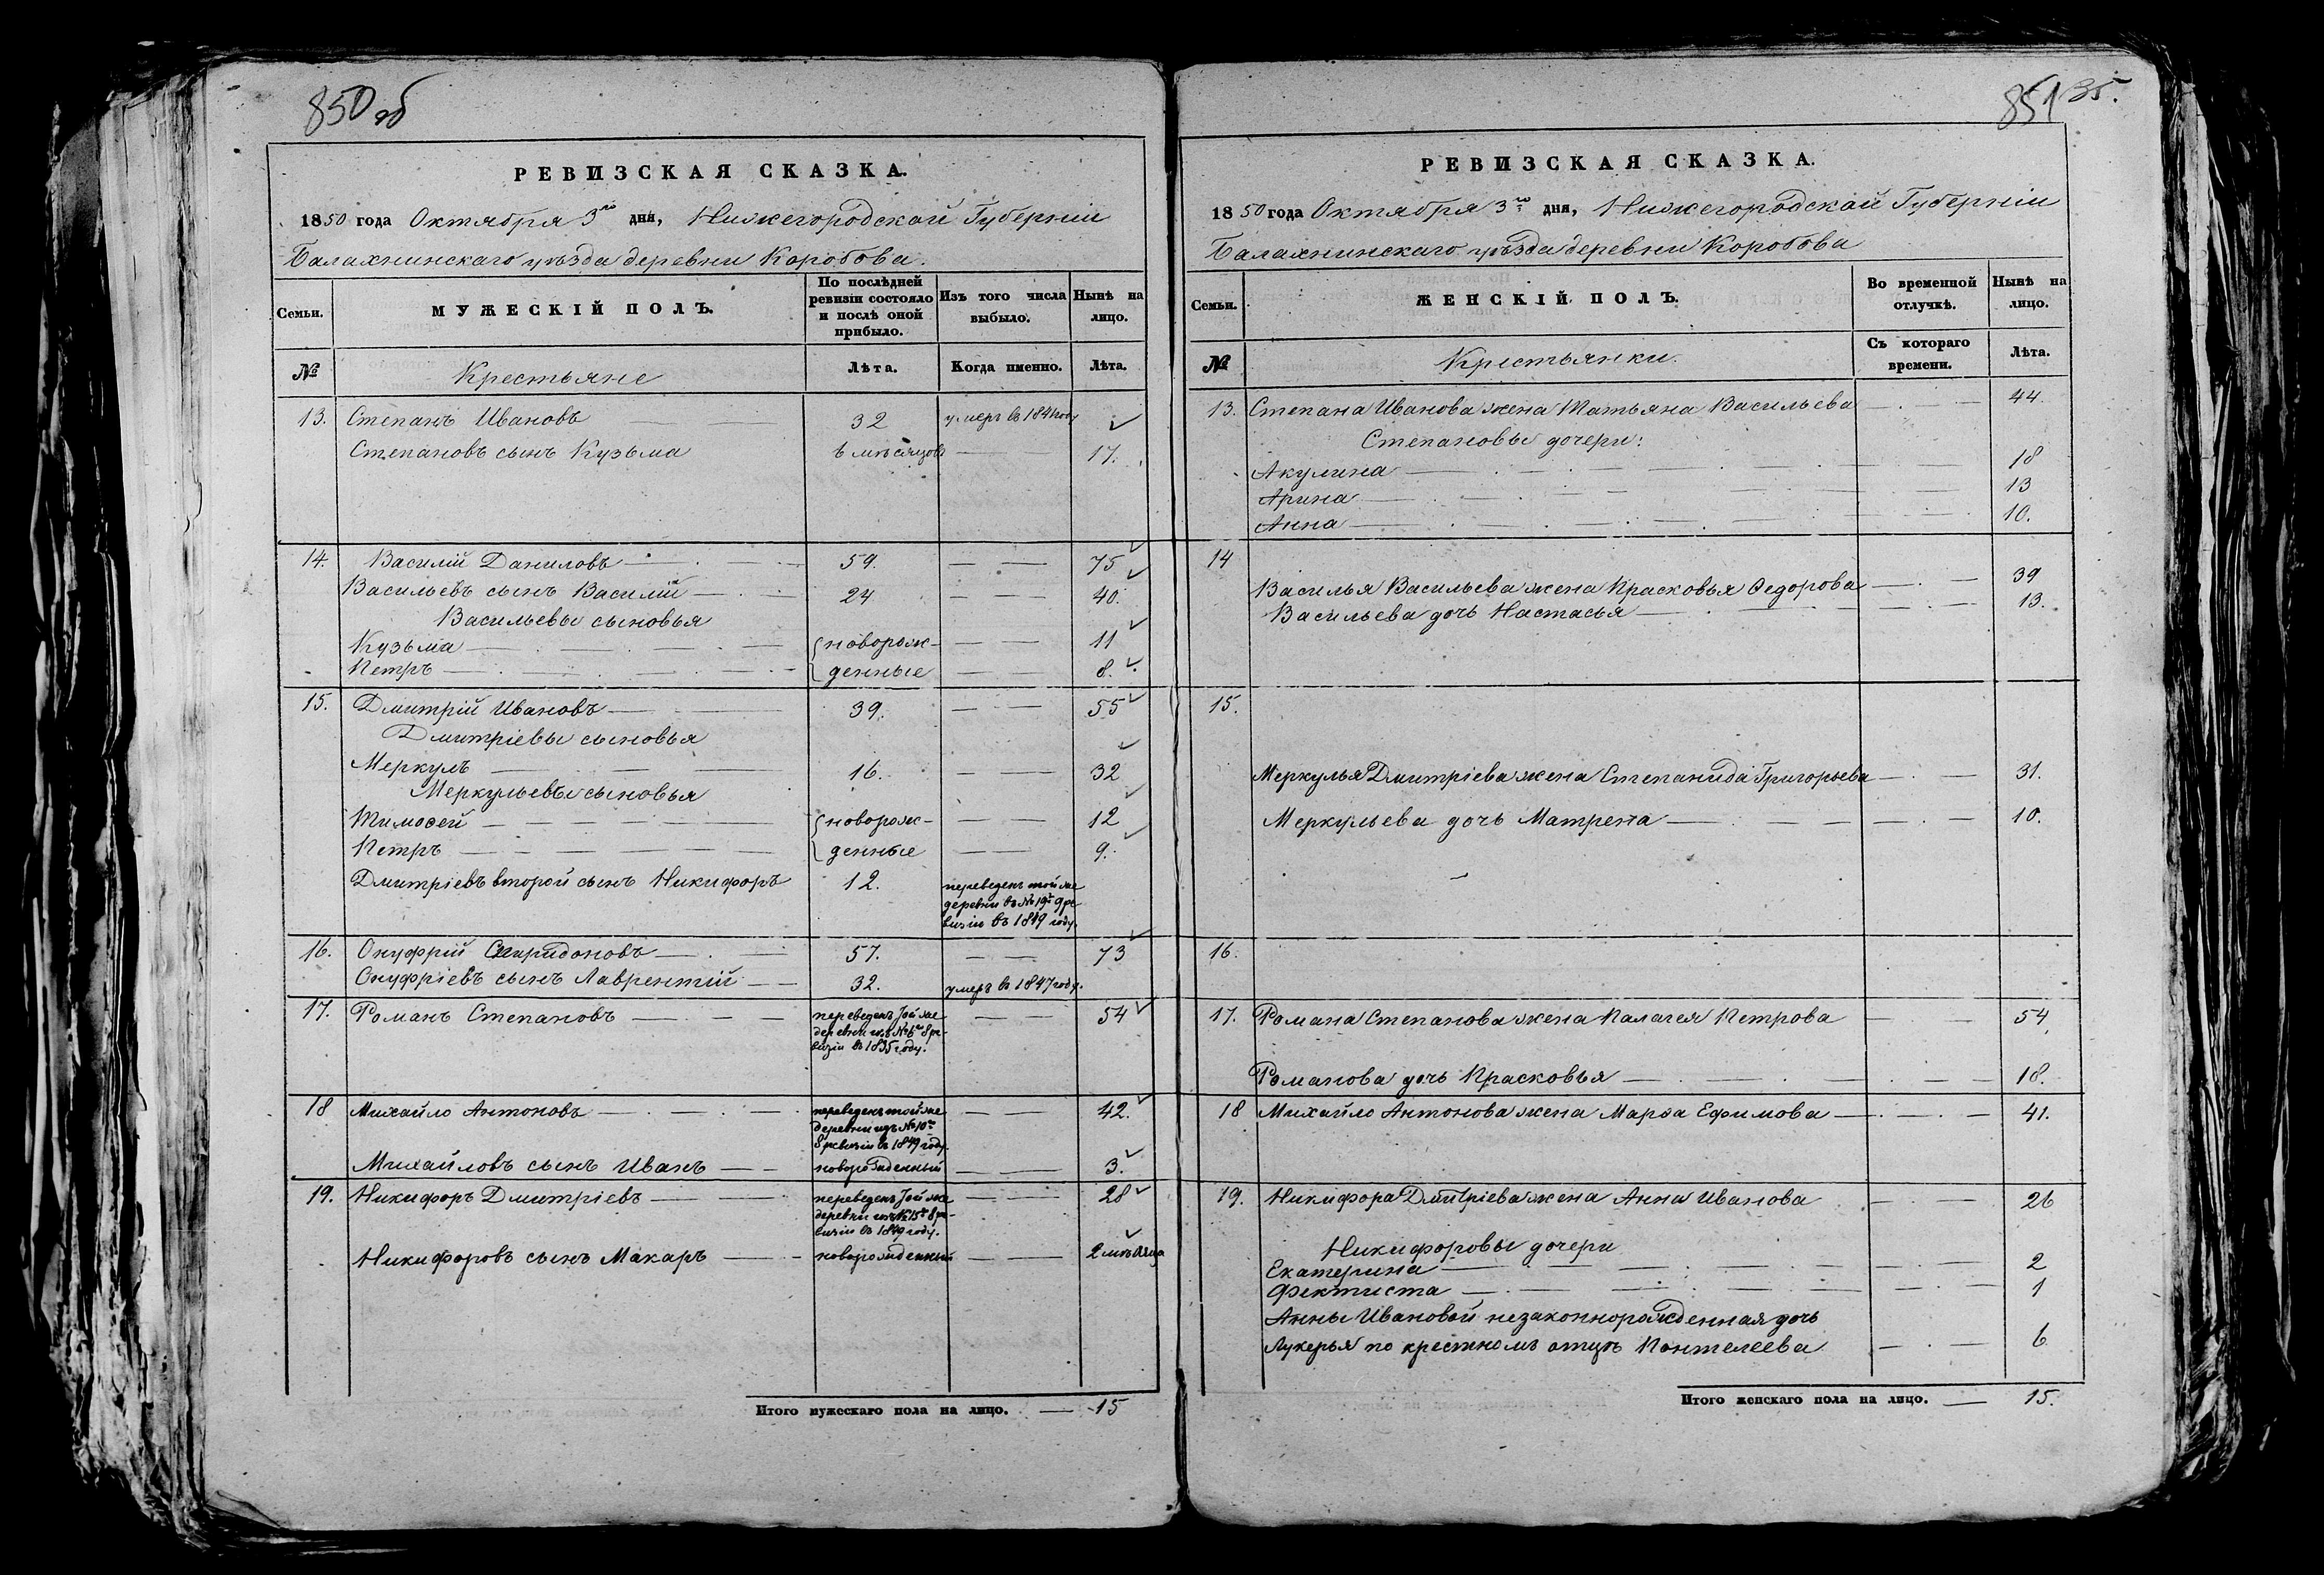 850 об
РЕВИЗСКАЯ СКАЗКА.
1850 года Октября 3го дня, Нижегородской Губерніи
Балахнинскаго уѣзда деревни Коробова.
Семьи. МУЖЕСКІЙ ПОЛЪ. По послѣдней ревизіи состояло и послѣ оной прибыло. Изъ того числа выбыло. Нынѣ на лицо.
№ Крестьяне Лѣта. Когда именно. Лѣта.
13. Степанъ Ивановъ 32 умеръ въ 1841 году
Степановъ сынъ Кузьма 6 мѣсяцовъ 17.
14. Василій Даниловъ 59. 75
Васильевъ сынъ Василій 24 40.
Васильевы сыновья
Кузьма новорож- 11
Петръ денные 8.
15. Дмитрій Ивановъ 39. 55
Дмитріевы сыновья
Меркулъ 16. 32
Меркульевы сыновья
Тимоѳей новорож- 12
Петръ денные 9.
Дмитріевъ второй сынъ Никифоръ 12. переведенъ той же
деревни въ № 19й 9 ре-
визіи въ 1849 году.
16. Онуфрій Спиридоновъ 57. 73
Онуфріевъ сынъ Лаврентій 32. умеръ въ 1847 году.
17. Романъ Степановъ переведенъ той же 54
деревни изъ № 8 ре-
визіи въ 1835 году.
18 Михайло Антоновъ переведенъ той же 42.
деревни изъ № 10го
8 ревизіи въ 1849 году.
Михайловъ сынъ Иванъ новорожденный 3.
19. Никифоръ Дмитріевъ переведенъ той же 28
деревни изъ № 15го 8 ре-
визіи въ 1849 году.
Никифоровъ сынъ Макаръ новорожденный 2 мѣсяца
Итого мужескаго пола на лицо. 15
851 35.
РЕВИЗСКАЯ СКАЗКА.
1850 года Октября 3го дня, Нижегородской Губерніи
Балахнинскаго уѣзда деревни Коробова
Семьи. ЖЕНСКІЙ ПОЛЪ. Во временной отлучкѣ. Нынѣ на лицо.
№ Крестьянки. Съ котораго времени. Лѣта.
13. Степана Иванова жена Татьяна Васильева 44.
Степановы дочери:
Акулина 18
Арина 13
Анна 10.
14
Василья Васильева жена Прасковья Ѳедорова 39
Васильева дочь Настасья 13.
15.
Меркулья Дмитріева жена Степанида Григорьева 31.
Меркульева дочь Матрена 10.
16.
17. Романа Степанова жена Палагея Петрова 54
Романова дочь Прасковья 18.
18 Михайло Антонова жена Марѳа Ефимова 41.
19. Никифора Дмитріева жена Анна Иванова 26
Никифоровы дочери
Екатерина 2
Фектиста 1
Анны Ивановой незаконнорожденная дочь
Лукерья по крестномъ отцѣ Понтелеева 6
Итого женскаго пола на лицо. 15.